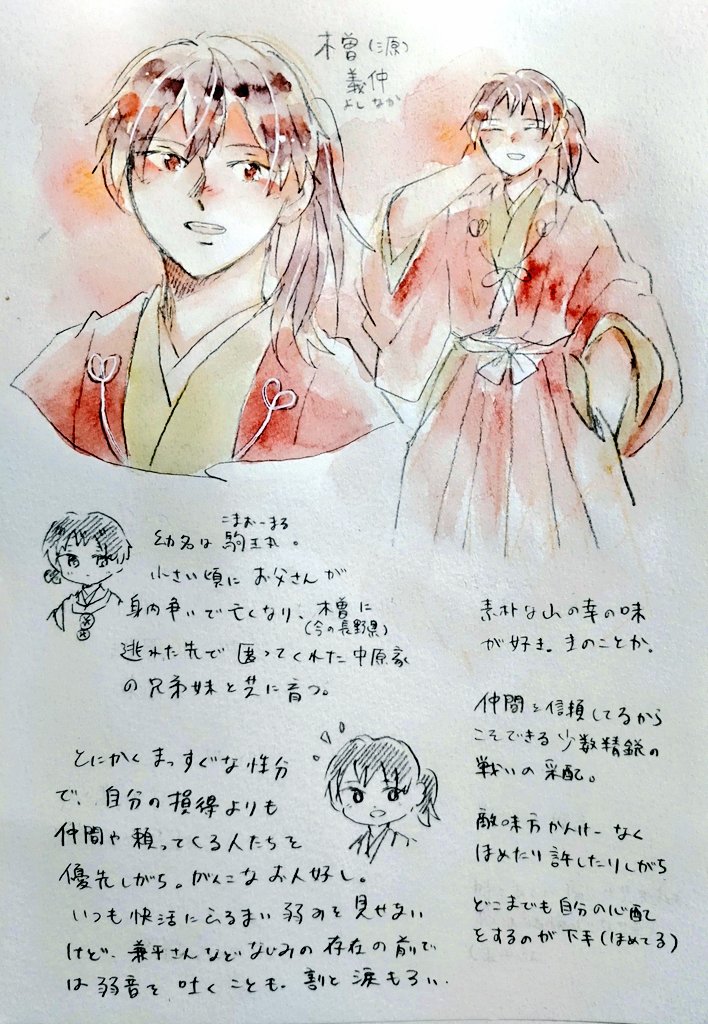 木曽(源)
義仲
よしなか
こまおーまる
幼名は 駒王丸。
小さい頃に お父さんが
身内争いで亡くなり、木曽に
(今の長野県)
逃れた先で 匿ってくれた中原家
の兄弟妹と共に育つ。
とにかく まっすぐな性分
で、自分の損得よりも
仲間や頼ってくる人たちを
優先しがち。がんこなお人好し。
いつも快活にふるまい弱みを見せない
けど、兼平さんなどなじみの存在の前で
は弱音を吐くことも。割と涙もろい.
素朴な山の幸の味
が好き。きのことか。
仲間を信頼してるから
こそできる少数精鋭の
戦いの采配。
敵味方かんけーなく
ほめたり許したりしがち
どこまでも自分の心配
をするのが下手(ほめてる)